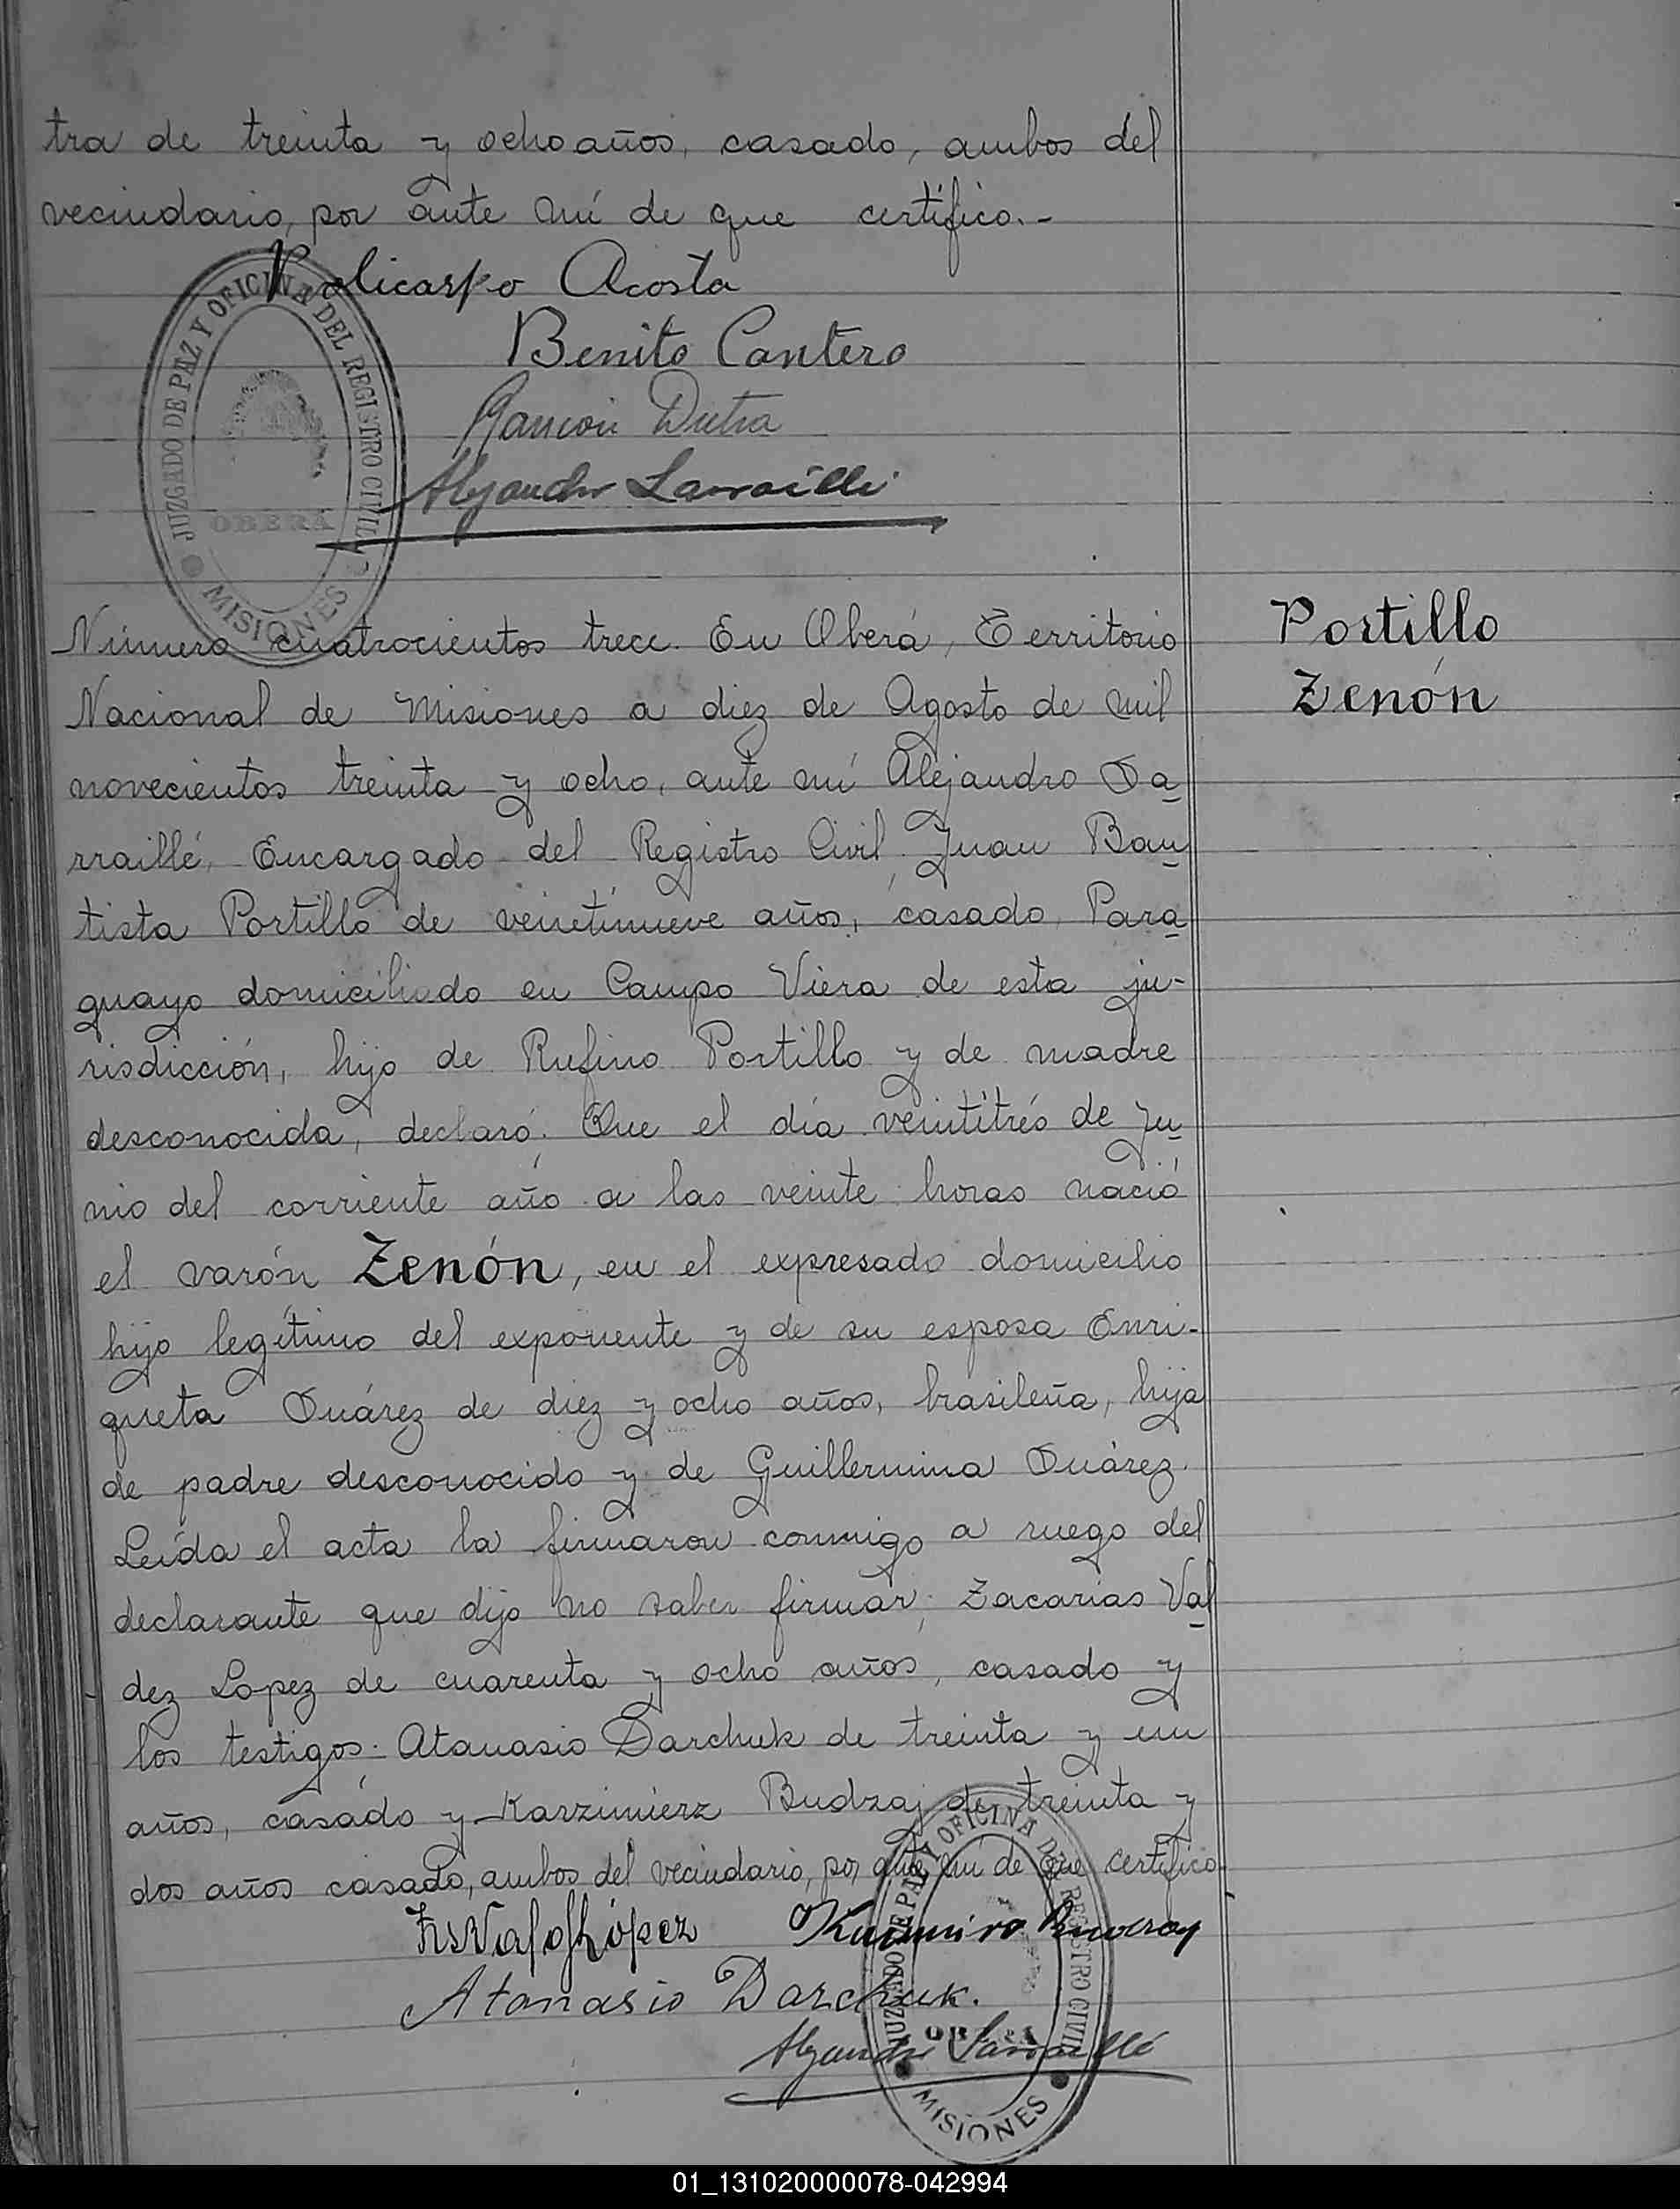 tra de treinta y ocho años, casado, ambos del
vecindario, por ante mí de que certifico.-
Policarpo Acosta
Benito Cantero
Ramón Dutra
Alejandro Sarraillé
JUZGADO DE PAZ Y OFICINA DEL REGISTRO CIVIL
OBERA
MISIONES
Número cuatrocientos trece. En Oberá, Territorio
Nacional de Misiones a diez de Agosto de mil
novecientos treinta y ocho, ante mí Alejandro Sa
rraillé, Encargado del Registro Civil, Juan Bau
tista Portillo de veintinueve años, casado, Para
guayo domiciliado en Campo Viera de esta ju-
risdicción, hijo de Rufino Portillo y de madre
desconocida, declaró: Que el día veintitrés de Ju
nio del corriente año a las veinte horas nació
el varón Zenón, en el expresado domicilio
hijo legítimo del exponente y de su esposa Enri-
queta Suárez de diez y ocho años, brasileña, hija
de padre desconocido y de Guillermina Suárez.
Leída el acta la firmaron conmigo a ruego del
declarante que dijo no saber firmar, Zacarías Val
dez Lopez de cuarenta y ocho años, casado y
los testigos: Atanasio Darchuk de treinta y un
años, casado y Karzimierz Budzaj de treinta y
dos años casado, ambos del vecindario, por ante mí de que certifico.
López
Atanasio Darchuk.
Alejandro Sarraillé
JUZGADO DE PAZ Y OFICINA DEL REGISTRO CIVIL
OBERA
MISIONES
Portillo
Zenón
01_131020000078-042994